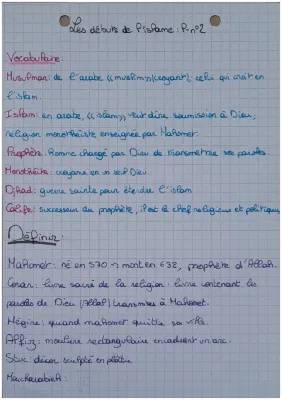 Les débuts de l'islame : P.n°2
Vocabulaire
Musulman: de l'arabe ((muslim)) (croyant); celui qui croit en
l'islam.
Islam: en arabe, ((islam)) veut dire soumission à Dieu,
religion monothéiste enseignée par Mahomet.
Prophète: Homme chargé pas Dieu de transmettre ses paroles
Monothéiste: croyance en un seul Dieu
Djihad: guerre sainte pour étendre l'islam
Calife: successeur du prophète, il est le chef religieux et politique
Définir:
Mahomet: né en 570 mort en 632, prophète d'Allah.
Coran: livre sacré de la religion: livre contenant les
paroles de Dieu (Allah) transmises à Mahomet.
Hégire: quand mahomet quitte sa ville.
Alfiz: moulure rectangulaire encadrent un arc.
Stuc: décor sculpté en plâtre